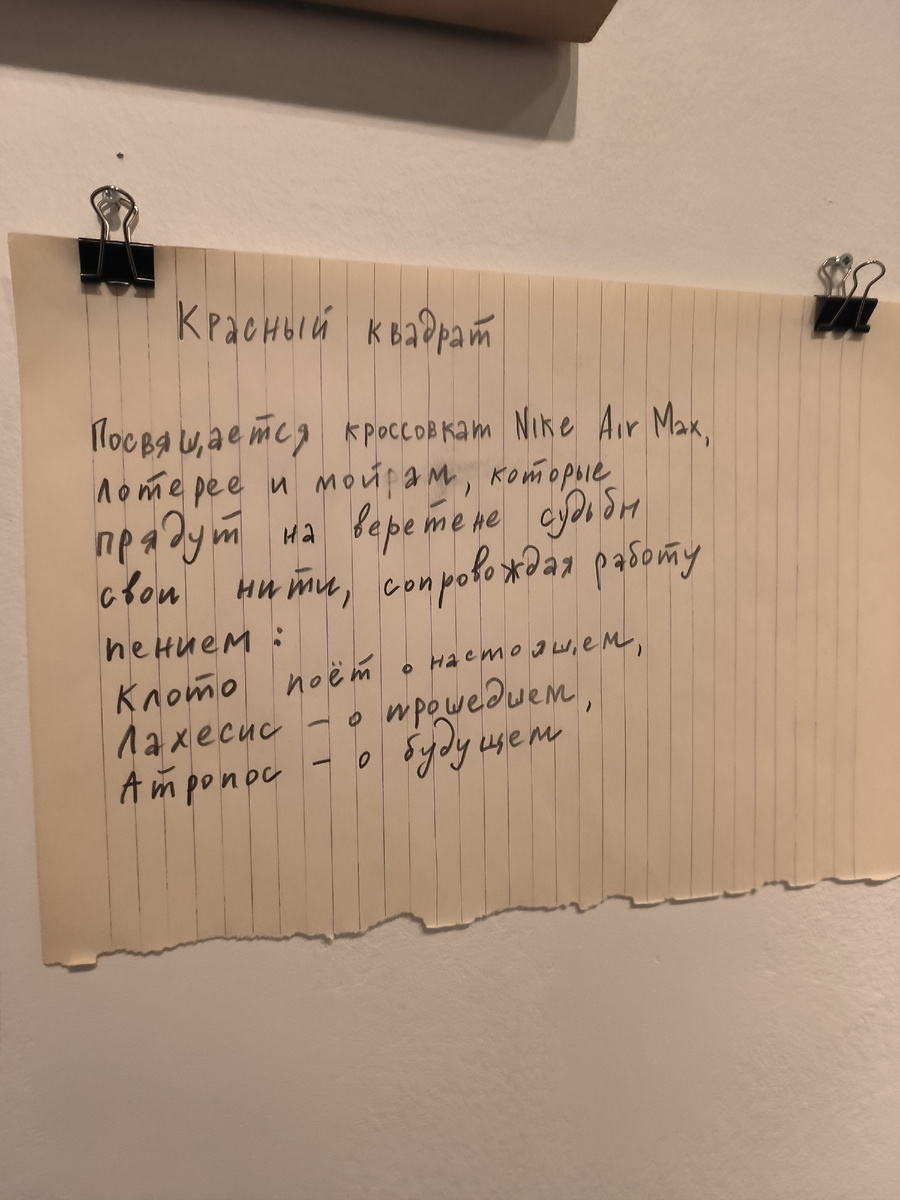 Красный квадрат
Посвящается кроссовкам Nike Air Max,
лотерее и мойрам, которые
прядут на веретене судьбы
свои нити, сопровождая работу
пением:
Клото поёт о настоящем,
Лахесис – о прошедшем,
Атропос – о будущем